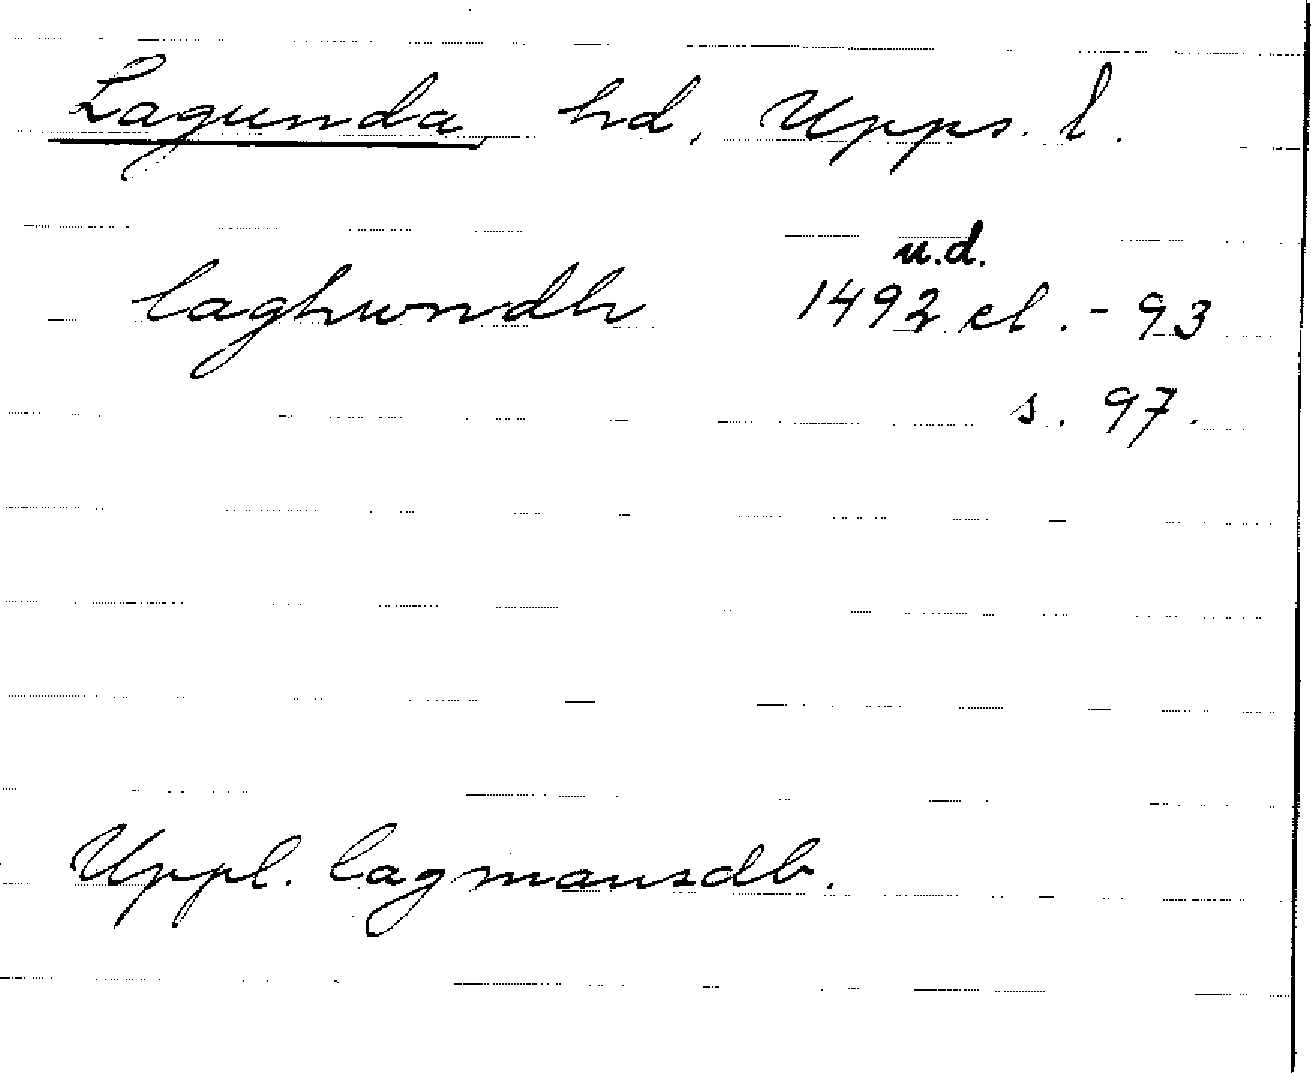 Lagunda hd, Upps. l.
u.d.
laghwndh 1492 el. - 93
s. 97.
Uppl. lagmansdb.